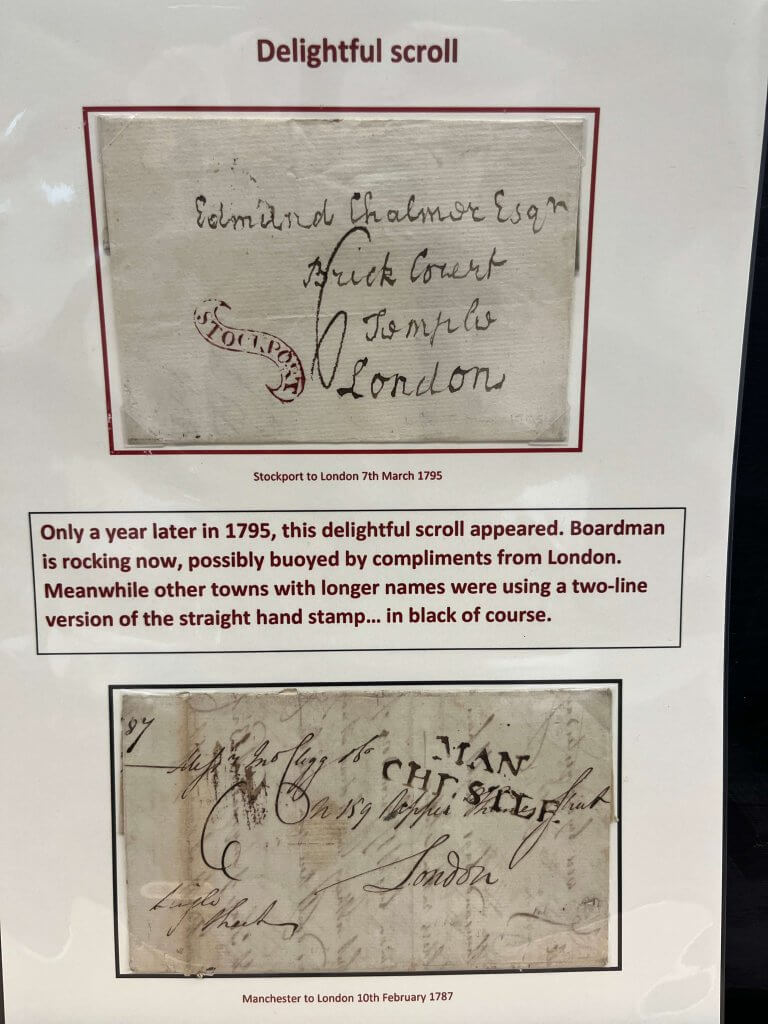 Delightful scroll
Edmund Chalmer Esqr
Brick Court
6
Temple
STOCKPORT
London
1795
Stockport to London 7th March 1795
Only a year later in 1795, this delightful scroll appeared. Boardman
is rocking now, possibly buoyed by compliments from London.
Meanwhile other towns with longer names were using a two-line
version of the straight hand stamp... in black of course.
87
MAN
CHESTER
Messrs Jno Clegg &Co
N 159 Upper Thames Street
6
London
Single
Sheet
Manchester to London 10th February 1787